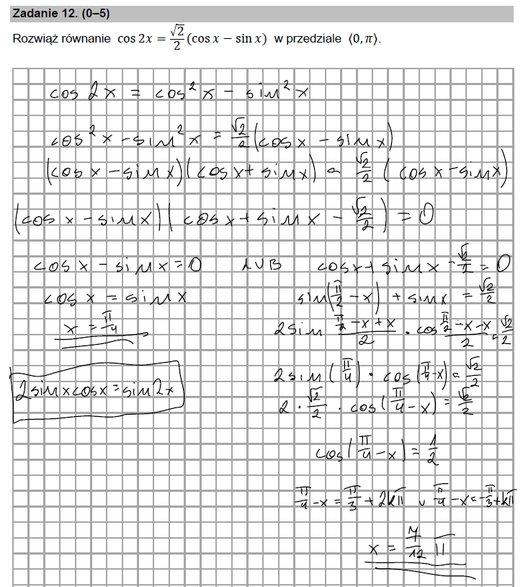 Zadanie 12. (0–5)
Rozwiąż równanie cos 2x = √2/2 (cos x − sin x) w przedziale ⟨0, π⟩.
cos 2x = cos²x − sin²x
cos²x − sin²x = √2/2 (cos x − sin x)
(cos x − sin x)(cos x + sin x) = √2/2 (cos x − sin x)
(cos x − sin x)(cos x + sin x − √2/2) = 0
cos x − sin x = 0 LUB cos x + sin x − √2/2 = 0
cos x = sin x
x = π/4
2 sin x cos x = sin 2x
sin(π/2 − x) + sin x = √2/2
2 sin (π/2 − x + x)/2 · cos (π/2 − x − x)/2 = √2/2
2 sin (π/4) · cos (π/4 − x) = √2/2
2 · √2/2 · cos (π/4 − x) = √2/2
cos (π/4 − x) = 1/2
π/4 − x = π/3 + 2kπ ∨ π/4 − x = −π/3 + kπ
x = 7/12 π